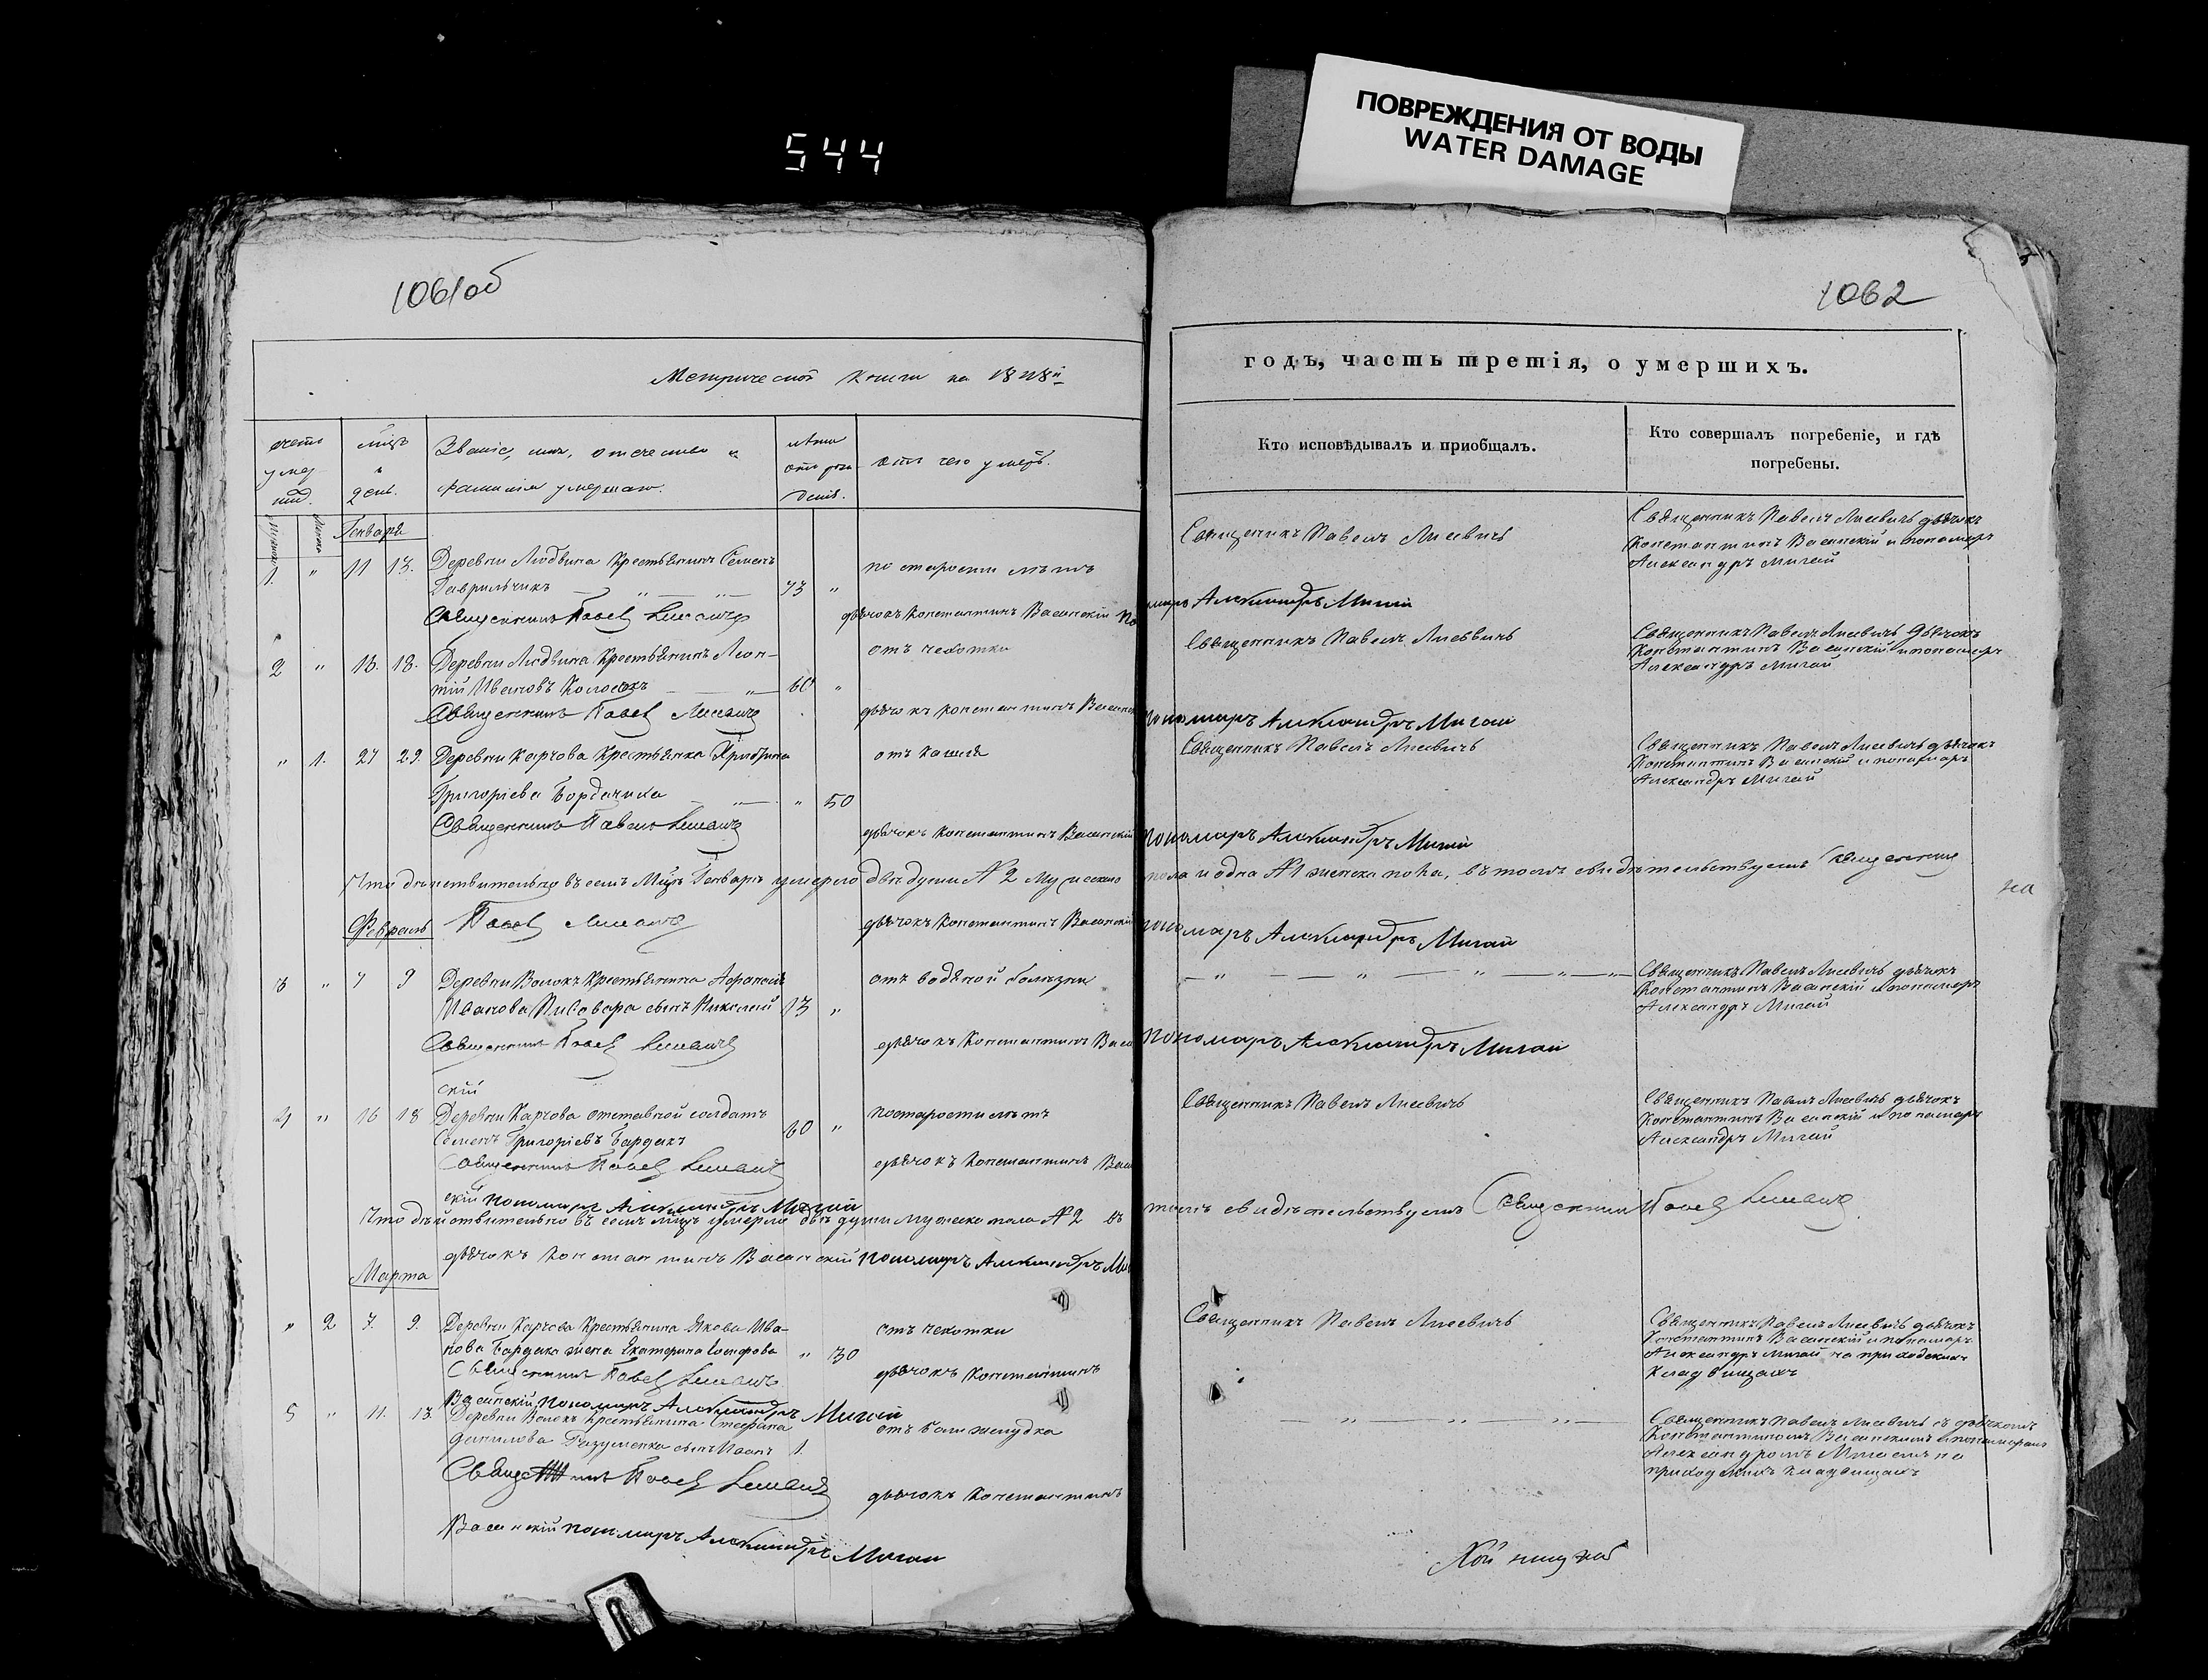 544
ПОВРЕЖДЕНИЯ ОТ ВОДЫ
WATER DAMAGE
1061об
1062
Метрической книги на 1848й
годъ, часть третія, о умершихъ.
счетъ умер шид.
мцъ и день.
Званіе, имя, отчество и
фамилія умершаго.
лѣта отъ рож деніе.
отъ чего умеръ.
Кто исповѣдывалъ и приобщалъ.
Кто совершалъ погребеніе, и гдѣ
погребены.
Генваря
1. " 11 13. Деревни Людвина Крестьянинъ Семенъ
Гаврильчикъ 73 "
по старости лѣтъ
Священникъ Павелъ Лисевичъ
Священникъ Павелъ Лисевичъ дьячокъ
Константинъ Васинскій и пономарь
Александръ Мигай
Священникъ Павелъ Лисевичъ дьячокъ Константинъ Васинскій пономарь Александръ Мигай
2 " 16. 18. Деревни Людвина Крестьянинъ Леон-
тій Ивановъ Колосокъ 60 "
отъ чехотки
Священникъ Павелъ Лисевичъ
Священникъ Павелъ Лисевичъ дьячокъ
Константинъ Васинскій и пономарь
Александръ Мигай
Священникъ Павелъ Лисевичъ дьячокъ Константинъ Васинск пономарь Александръ Мигай
" 1. 27 29. Деревни Карчова Крестьянка Христина
Григоріева Бордачиха " 50
отъ кашля
Священникъ Павелъ Лисевичъ
Священникъ Павелъ Лисевичъ дьячокъ
Константинъ Васинскій и пономарь
Александръ Мигай
Священникъ Павелъ Лисевичъ дьячокъ Константинъ Васинскій пономарь Александръ Мигай
Что дѣйствительно въ семъ Мцѣ Генварѣ умерло двѣ души № 2 мужеска пола и одна № 1 женска пола, въ томъ свидѣтельствуемъ Священникъ
Павелъ Лисевичъ дьячокъ Константинъ Васинскій пономарь Александръ Мигай
на
Февраль
3 " 7 9 Деревни Волокъ Крестьянина Афанасія
Иванова Пивовара сынъ Николай 13 "
отъ водяной болѣзни
Священникъ Павелъ Лисевичъ дьячокъ
Константинъ Васинскій и пономарь
Александръ Мигай
Священникъ Павелъ Лисевичъ дьячокъ Константинъ Васин пономарь Александръ Мигай
скій
4 " 16 18 Деревни Карчова отставной солдатъ
Семенъ Григоріевъ Бардакъ 60 "
по старости лѣтъ
Священникъ Павелъ Лисевичъ
Священникъ Павелъ Лисевичъ дьячокъ
Константинъ Васинскій и пономарь
Александръ Мигай
Священникъ Павелъ Лисевичъ дьячокъ Константинъ Васин
скій пономарь Александръ Мигай
Что дѣйствительно въ семъ мцѣ умерло двѣ души мужеска пола № 2 въ томъ свидѣтельствуемъ Священникъ Павелъ Лисевичъ
дьячокъ Константинъ Васинскій пономарь Александръ Ми
Марта
" 2 7. 9. Деревни Карчева Крестьянина Якова Ива-
нова Бардака жена Екатерина " 30
отъ чехотки
Священникъ Павелъ Лисевичъ
Священникъ Павелъ Лисевичъ дьячокъ
Константинъ Васинскій и пономарь
Александръ Мигай на приходскихъ
кладбищахъ
Священникъ Павелъ Лисевичъ дьячокъ Константинъ
Васинскій пономарь Александръ Мигай
5 " 11. 13. Деревни Волокъ Крестьянина Стефана
Данилова Базуменка сынъ Иванъ 1.
отъ боли желудка
Священникъ Павелъ Лисевичъ съ дьячкомъ
Константиномъ Васинскимъ и пономаремъ
Александромъ Мигаемъ на
приходскихъ кладбищахъ
Священникъ Павелъ Лисевичъ дьячокъ Константинъ
Васинскій пономарь Александръ Мигай